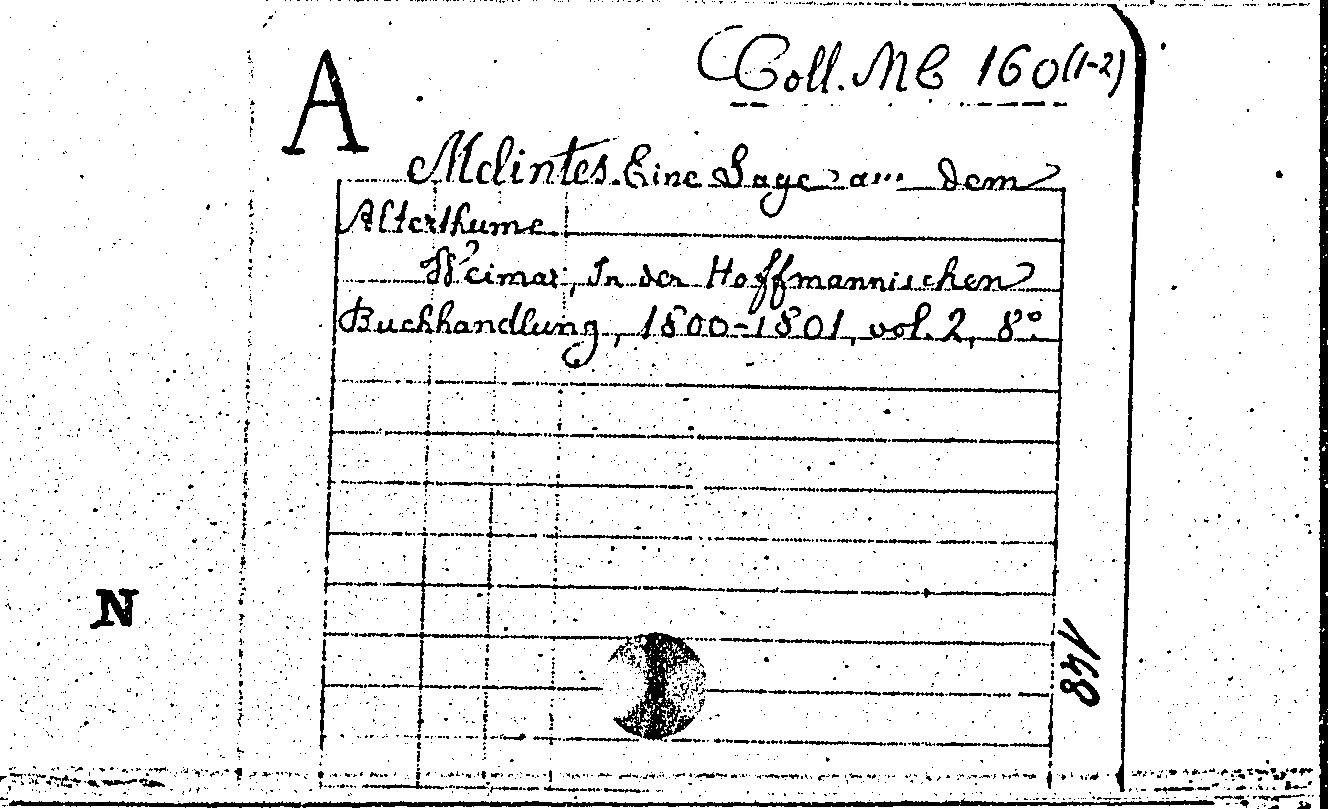 A
Coll. MC 160 (1-2)
Eine Sage aus dem
Alterthume
Weimar, In der Hoffmannischen
Buchhandlung, 1800-1801, vol. 2, 8°
N
148